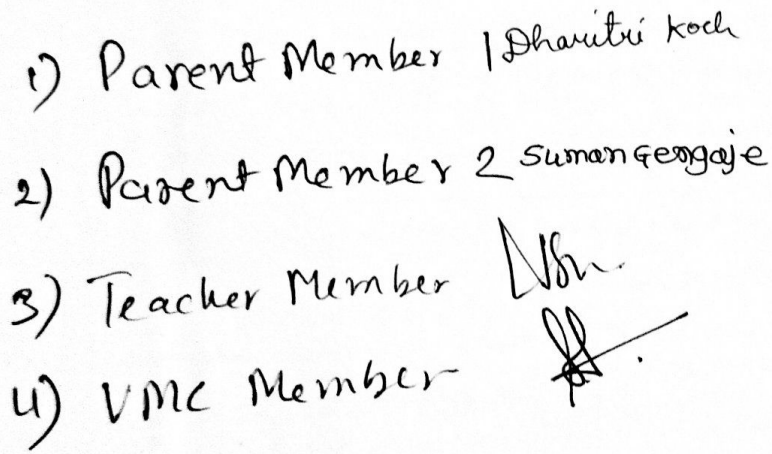 1) Parent Member 1 Dharitri Koch
2) Parent Member 2 Suman Gengaje
3) Teacher Member
4) VMC Member